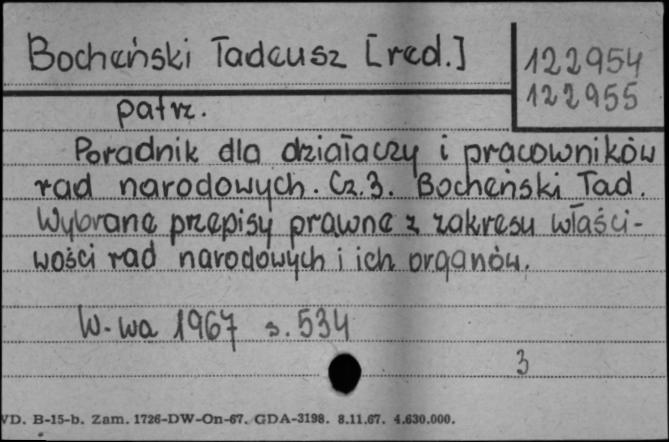 Bocheński Tadeusz [red.]
122954
122955
patrz.
Poradnik dla działaczy i pracowników
rad narodowych. Cz. 3. Bocheński Tad.
Wybrane przepisy prawne z zakresu właści-
wości rad narodowych i ich organów.
W-wa 1967 s. 534
3
VD. B-15-b. Zam. 1726-DW-On-67. GDA-3198. 8.11.67. 4.630.000.